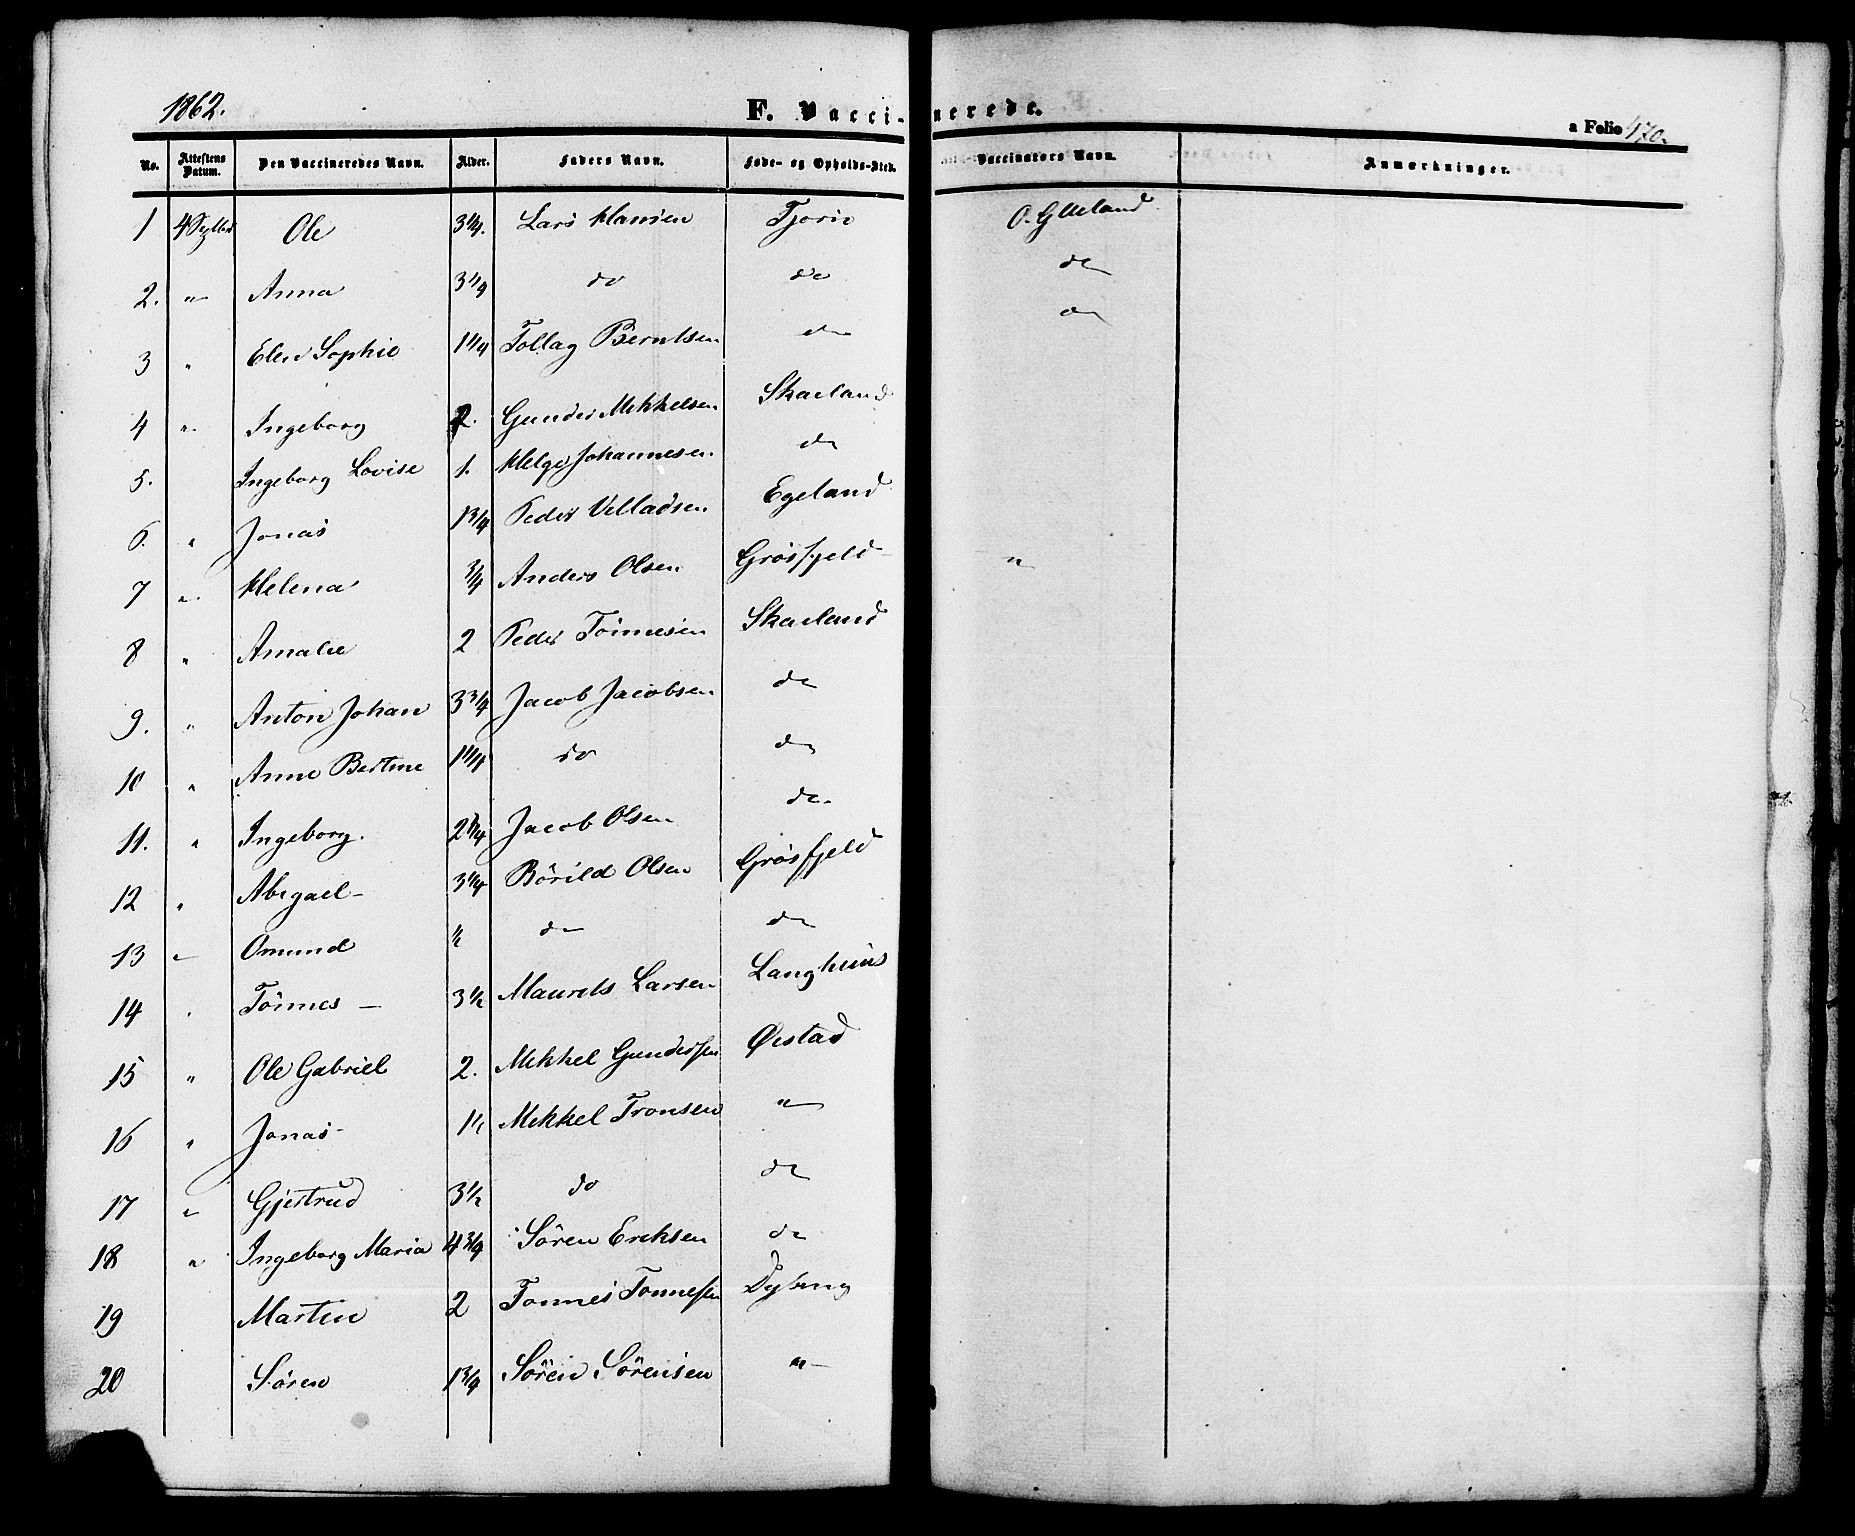 1862.
F. Vaccinerede.
a Folio 470.
No. Attestens Datum. Den Vaccineredes Navn. Alder. Faders Navn. Føde- og Opholds-Sted. Vaccinators Navn. Anmærkninger.
1 4 Ole 3 1/4. Lars Hansen Tjorn O. G Ueland
2. " Anna 3 1/4 do do do
3 " Elen Sophie 1 1/4 Tollag Berntsen do do
4 " Ingeborg 2. Gunder Mikkelsen Skaeland
5. Ingeborg Lovise 1. Helge Johannesen do
6. " Jonas 1 3/4 Peder Velladsen Egeland
7 " Helena 3/4 Anders Olsen Grösfjeld "
8 " Amalie 2 Peder Tönnesen Skaeland
9. " Anton Johan 3 3/4 Jacob Jacobsen do
10 " Anne Bertine 1 1/4 do do
11. " Ingeborg. 2 1/4 Jacob Olsen do
12 " Abigael 3 1/4 Börild Olsen Grösfjeld
13 " Omund 1/2 do do
14 " Tönnes 3 1/2 Maurits Larsen Langhuus
15 " Ole Gabriel 2. Mikkel Gundersen Østad
16 " Jonas 1 1/2 Mikkel Tronsen "
17 " Gjertrud 3 1/2 do do
18 " Ingeborg Maria 4 3/4 Sören Eriksen do
19 Martin 2 Tonnes Tonnesen Dybing
20 Sören 1 3/4 Sören Sörensen "